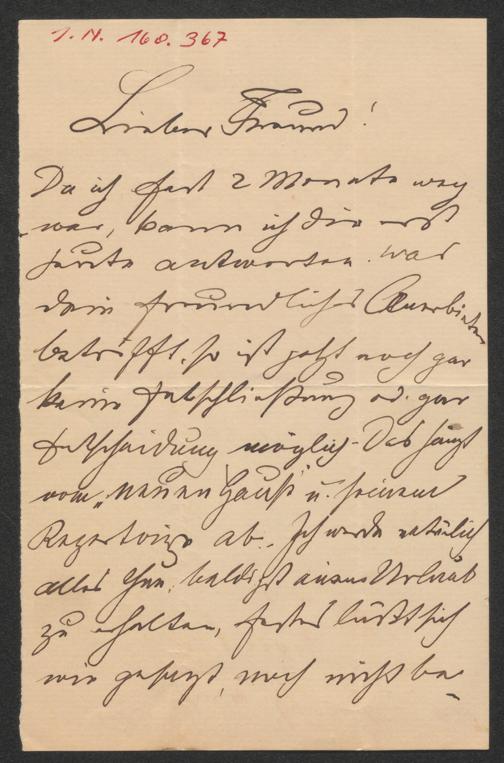 I. N. 168.367
Lieber Freund!
Da ich fast 2 Monate weg
war, kann ich dir erst
heute antworten. Was
dein freundliches Anerbieten
betrifft, so ist jetzt noch gar
keine Entschließung od. gar
Entscheidung möglich. Das hängt
vom „neuen Hause" u. seinem
Repertoire ab. Ich werde natürlich
alles thun, baldigst einen Urlaub
zu erhalten, festes läßt sich
wie gesagt, noch nicht be-